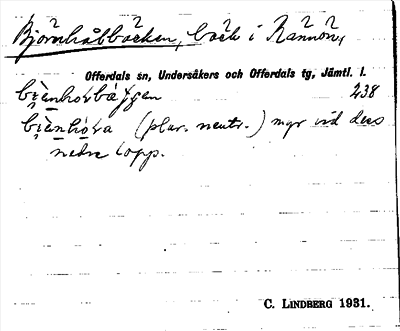 Björnhålbäcken, bäck i Rännön,
Offerdals sn, Undersåkers och Offerdals tg, Jämtl. l.
238
(plur. neutr.) myr vid dess
nedre lopp.
C. LINDBERG 1931.